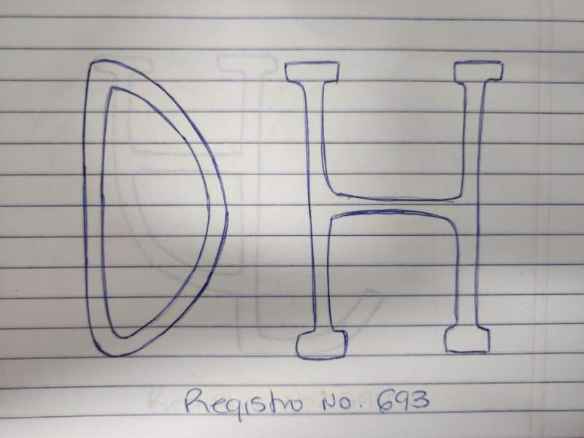 DH
Registro No. 693